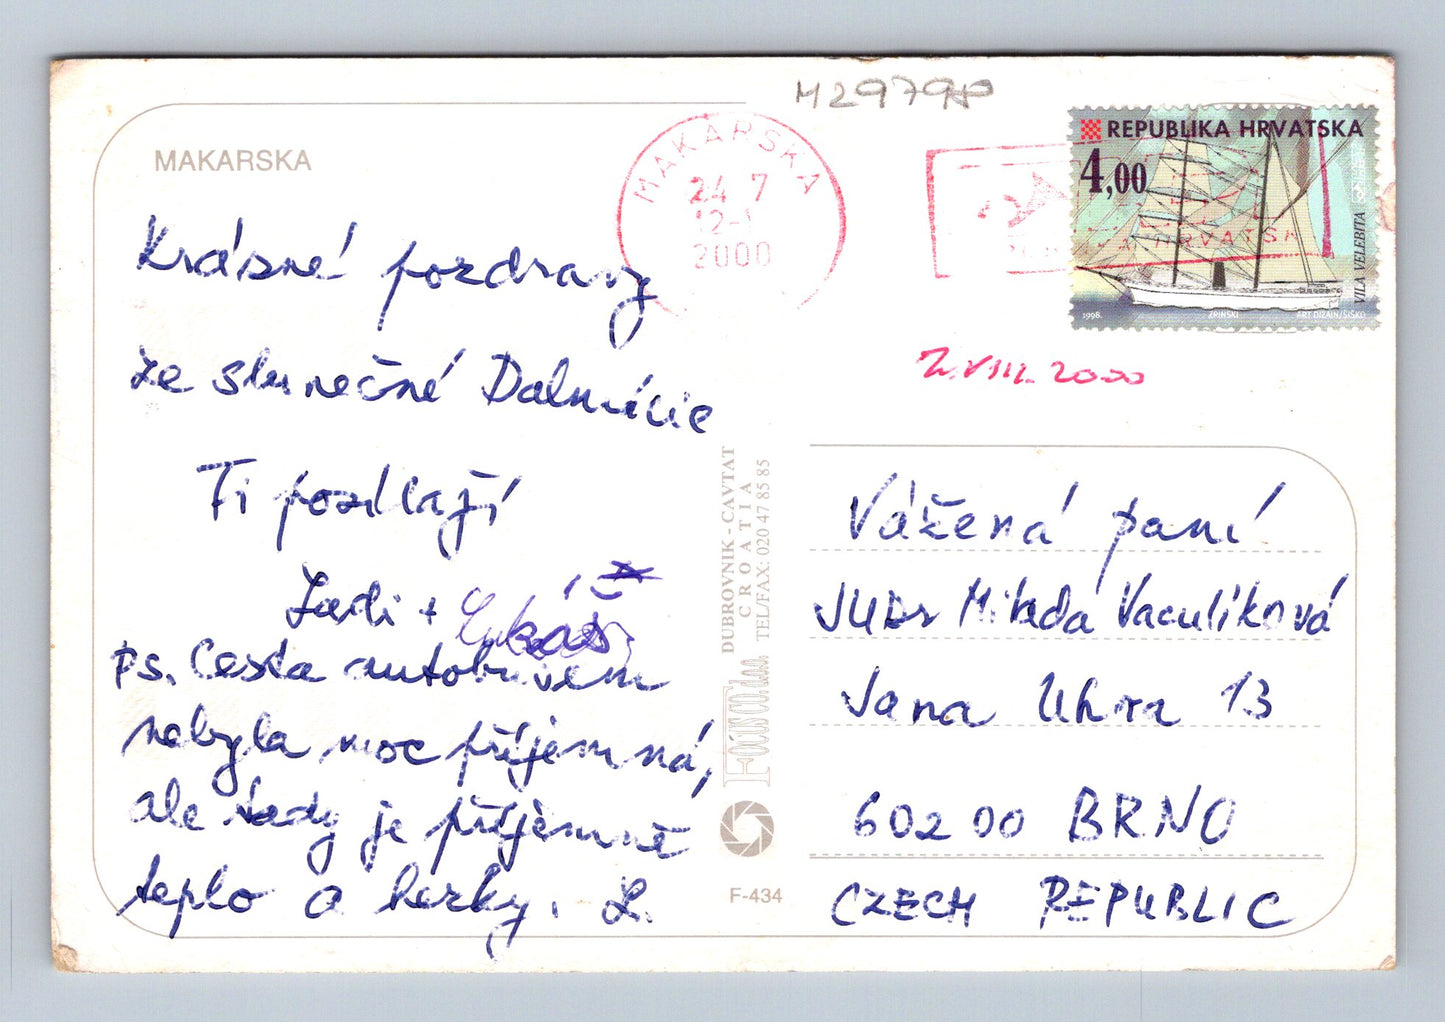 M2979
MAKARSKA
MAKARSKA
24 7
12-1
2000
HRVATSK
REPUBLIKA HRVATSKA
4,00
VILA VELEBITA
1998.
ZRINSKI
ART DIZAJN/ŠIŠKO
Krásné pozdravy
ze slunečné Dalmácie
Ti posílají
Ladi + Lukáš
ps. Cesta autobusem
nebyla moc příjemná,
ale tady je příjemně
teplo a hezky. L.
DUBROVNIK - CAVTAT
CROATIA
TEL/FAX: 020 47 85 85
FOCUS CO. d.o.o.
F-434
2.VIII. 2000
Vážená paní
JUDr Milada Vaculíková
Jana Uhra 13
60200 BRNO
CZECH REPUBLIC